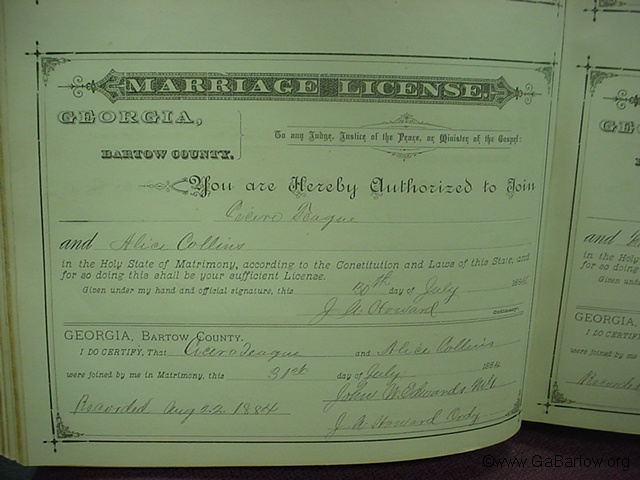 MARRIAGE LICENSE.
GEORGIA,
BARTOW COUNTY.
To any Judge, Justice of the Peace, or Minister of the Gospel:
You are Hereby Authorized to Join
Cicero Teague
and Alice Collins
in the Holy State of Matrimony, according to the Constitution and Laws of this State, and
for so doing this shall be your sufficient License.
Given under my hand and official signature, this day of July 1884
J A Howard Ordinary.
GEORGIA, BARTOW COUNTY.
I DO CERTIFY, That Cicero Teague and Alice Collins
were joined by me in Matrimony, this 31st day of July 1884
John W. Edwards M.G
Recorded Aug 22 1884
J A Howard Ordy
GEORGIA
and
in the Holy
for so doing
Given under
GEORGIA,
I DO CERTIFY
were joined by me
Recorded
©www.GaBartow.org